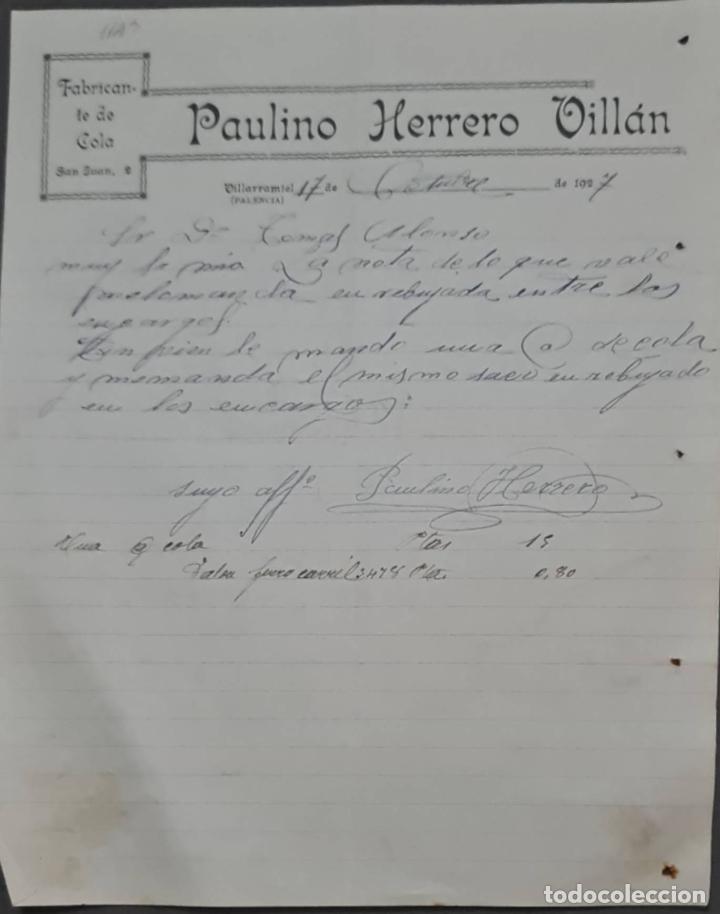 Fabrican-
te de
Cola
San Juan, 2
Paulino Herrero Villán
Villarramiel 17 de Octubre de 1927
(PALENCIA)
Sr Dn Tomas Alonso
muy Sr mio La nota de lo que vale
me lo manda en rebujada entre los
encargos.
Tan bien le mando una @ de cola
y memanda el mismo saco en rebujado
en los encargos:
suyo affº Paulino Herrero
Una @ cola Ptas 15
ferro carril 3478 Pta. 0,80
todocoleccion.net